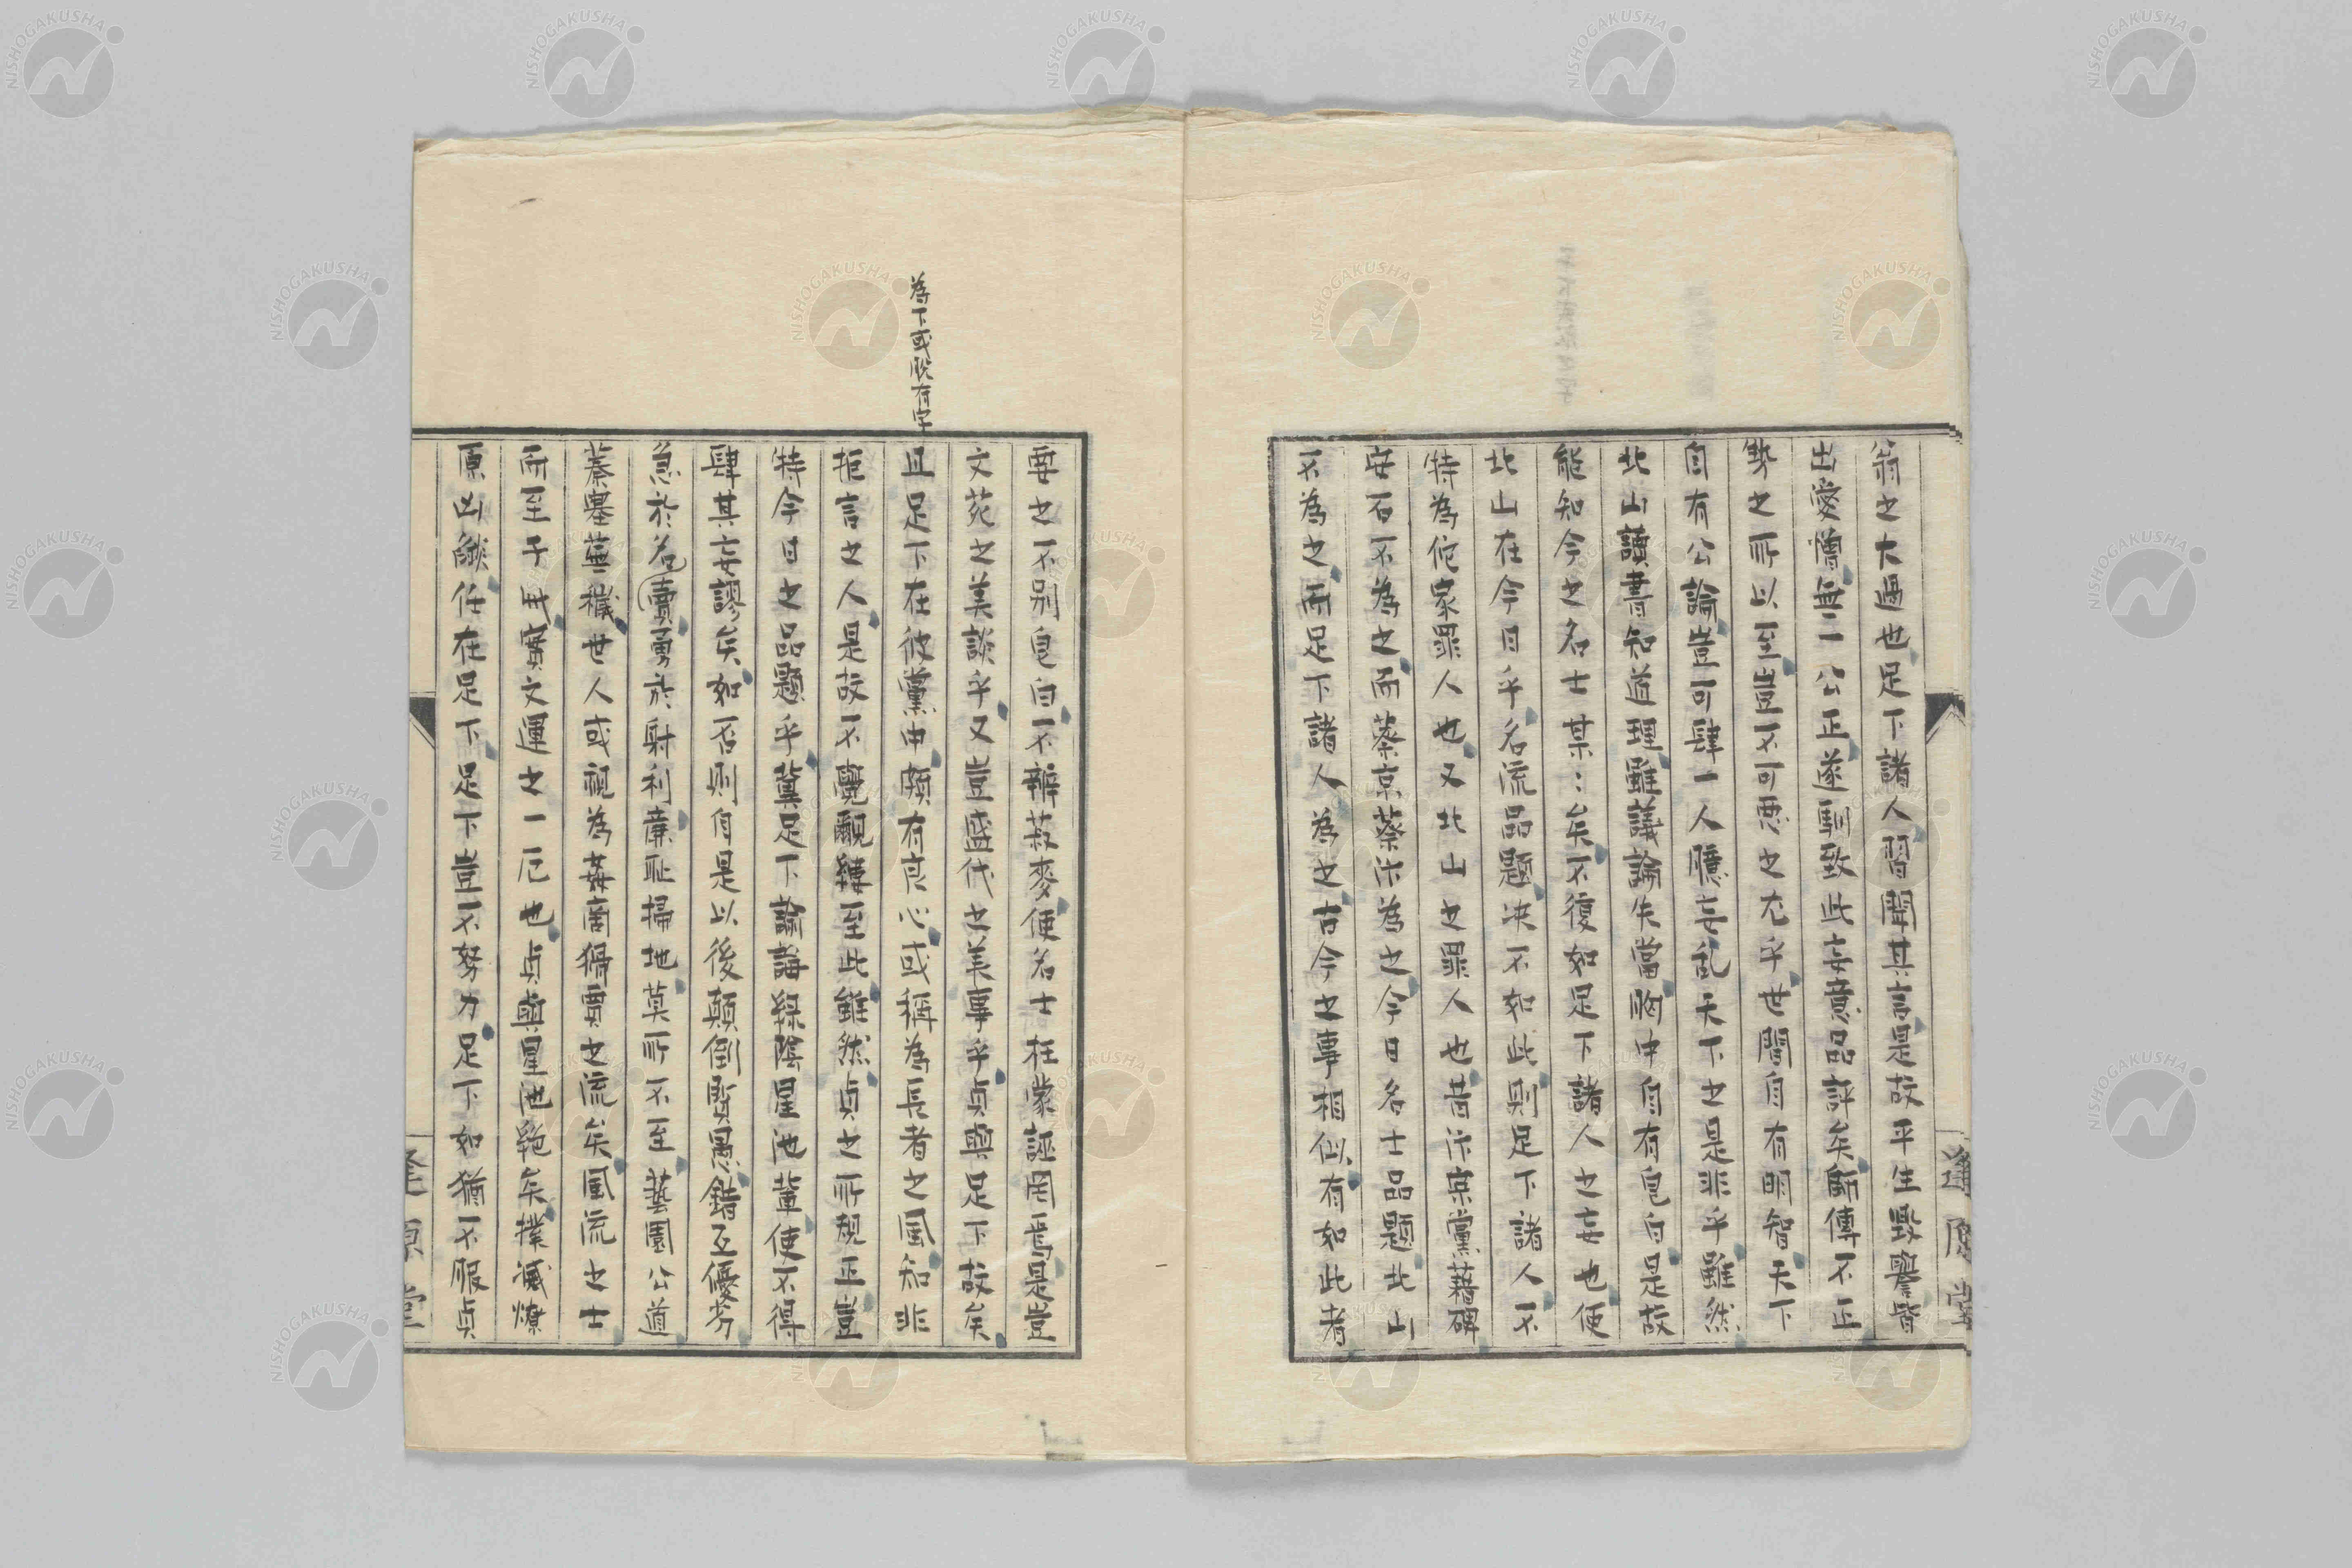 翁之大過也足下諸人習聞其言是故平生毀譽皆
出愛憎無一公正遂馴致此妄意品評矣師傳不正
勢之所以至豈不可悪之尤乎世間自有明智天下
自有公論豈可肆一人臆妄乱天下之是非乎雖然
北山讀書知道理雖議論失當胸中自有皂白是故
能知今之名士某〻矣不復如足下諸人之妄也使
北山在今日乎名流品題决不如此則足下諸人不
特為佗家罪人也又北山之罪人也昔汴宋黨藉碑
安石不為之而蔡京蔡汴為之今日名士品題北山
不為之而足下諸人為之古今之事相似有如此者
逢原堂
為下或脱有字
要之不別皂白不辨菽麥使名士枉蒙誣罔焉是豈
文苑之美談乎又豈盛代之美事乎貞與足下故矣
且足下在彼黨中頗有良心或稱為長者之風知非
拒言之人是故不覺覼縷至此雖然貞之所規正豈
特今日之品題乎冀足下論誨緑陰星池輩使不得
肆其妄謬矣如否則自是以後顛倒賢愚錯互優劣
急於名賣勇於射利廉恥掃地莫所不至藝園公道
蓁塞蕪穢世人或視為姦商猾賈之流矣風流之士
而至于此實文運之一厄也貞與星池絶矣撲滅燎
原凶燄任在足下足下豈不努力足下如猶不服貞
逢原堂